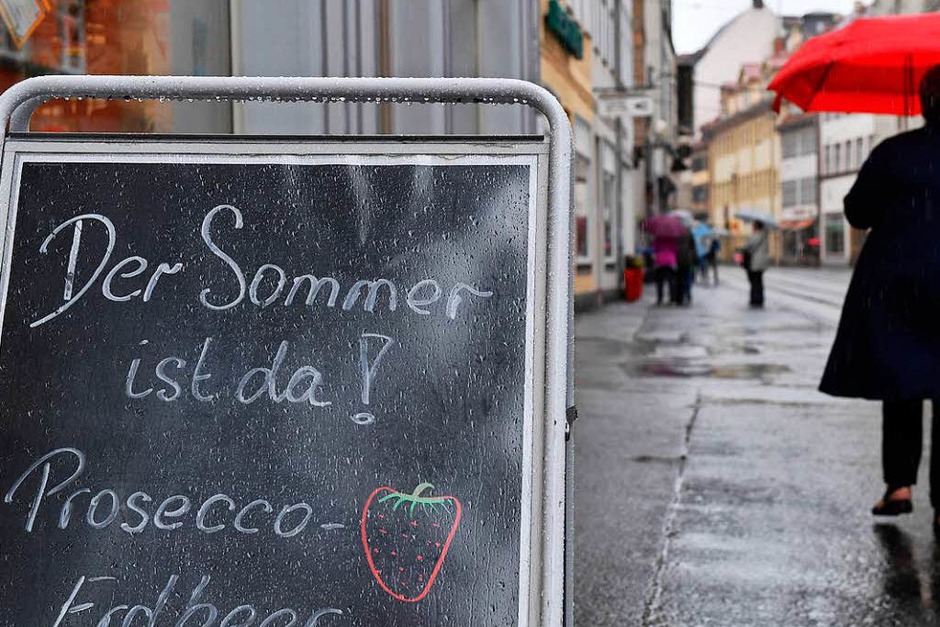 Der Sommer
ist da!
Prosecco-
Erdbeer